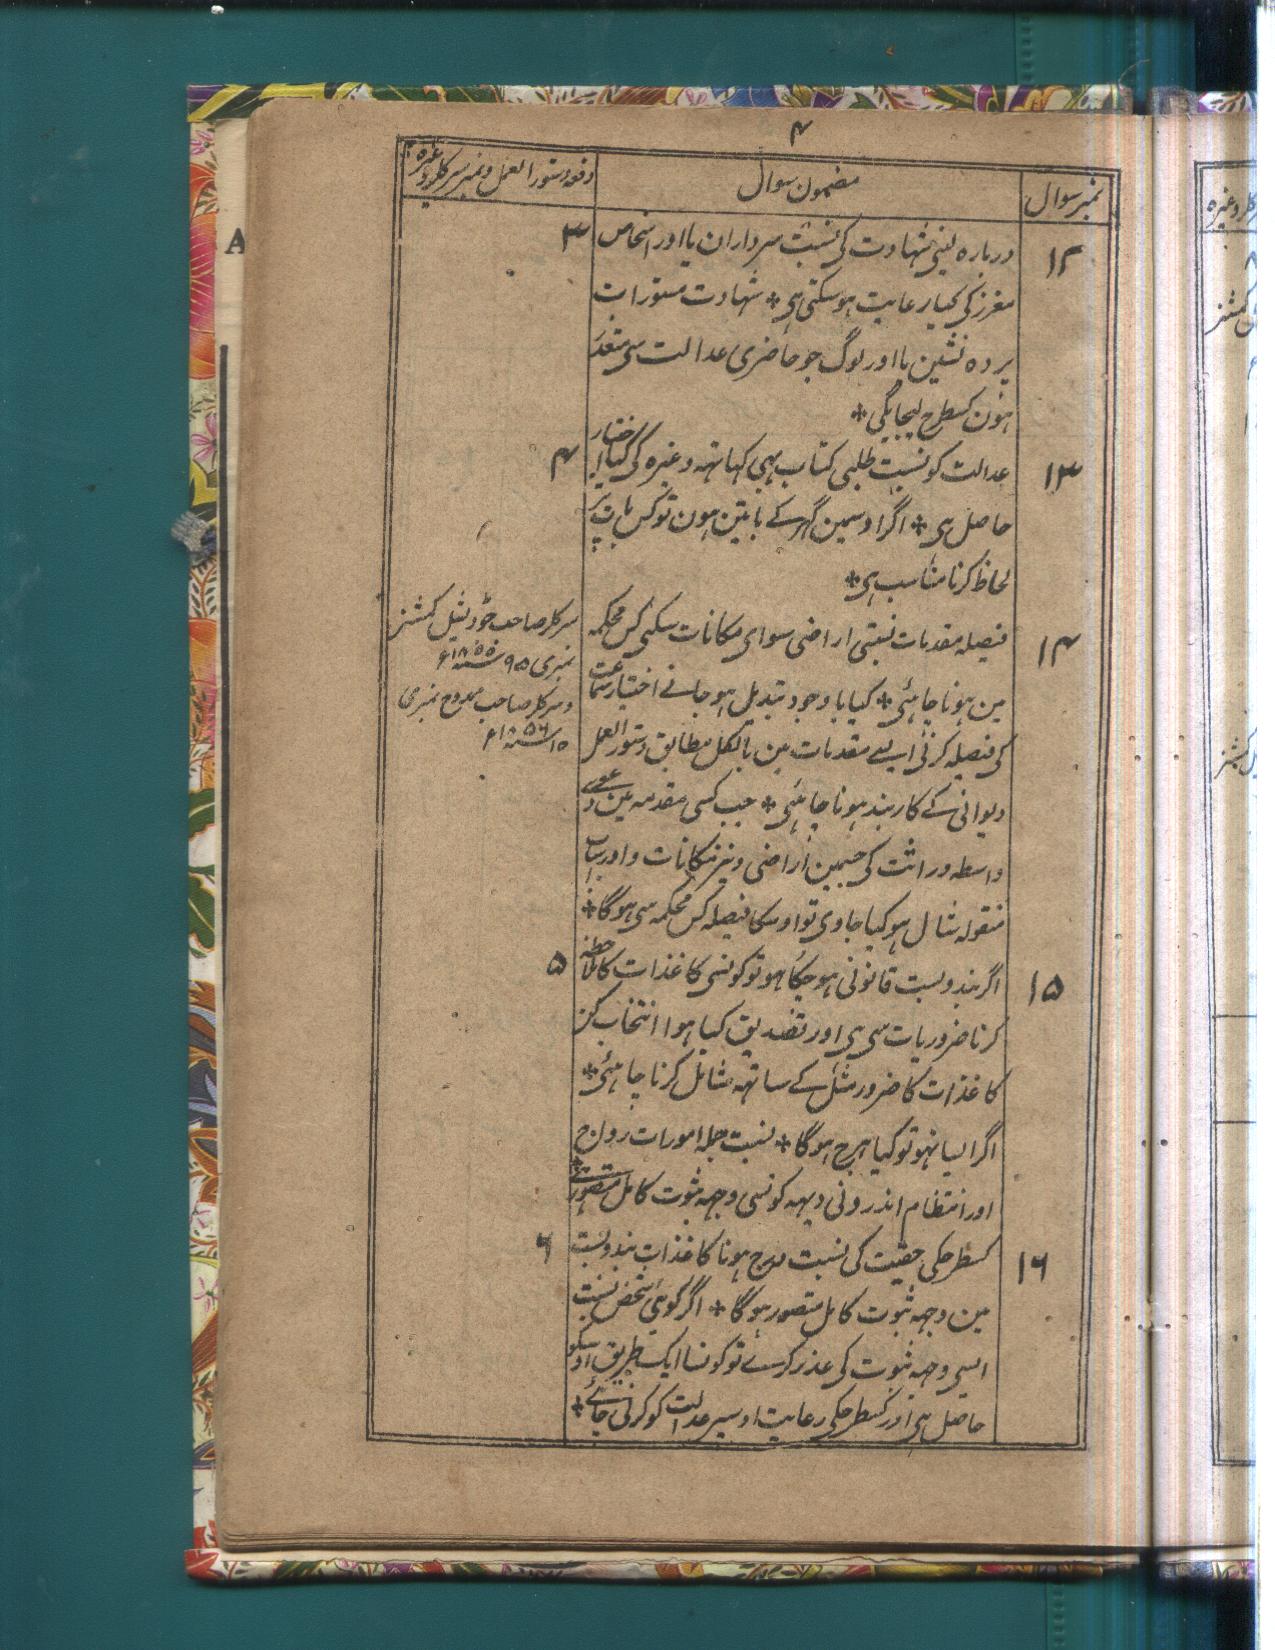 ۴
نمبر سوال
مضمون سوال
دفعہ دستور العمل و نمبر سرکلر وغیرہ
۱۲
درباره لینی شہادت کی نسبت سرداران یا اور اشخاص
۳
معزز کی کیا رعایت ہو سکتی ہی * شہادت مستورات
پردہ نشین یا اور لوگ جو حاضری عدالت سی متعذر
ہون کسطرح لیجایگی *
۱۳
عدالت کو نسبت طلبی کتاب بہی کہاتہ وغیرہ کی کیا اختیار
۴
حاصل ہی * اگر اوسمین گہر کے باتین ہون تو کس بات پر
لحاظ کرنا مناسب ہی *
۱۴
فیصلہ مقدمات نسبتی اراضی سوای مکانات سکنی کس محکمہ
سرکلر صاحب جوڈیشل کمشنر
مین ہونا چاہئی * کیا با وجود تبدیل ہو جانے اختیار سماعت
نمبری ۹۵ سنہ ۱۸۵۵ع
کی فیصلہ کرنی ایسے مقدمات مین بالکل مطابق دستور العمل
و سرکلر صاحب ممدوح نمبری
۱۵ سنہ ۱۸۵۶ع
دیوانی کے کاربند ہونا چاہئی * جب کسی مقدمہ مین دعوے
واسطہ وراثت کی جسمین اراضی و نیز مکانات و اور اسباب
منقولہ شامل ہو کیا جاوی تو اوسکا فیصلہ کس محکمہ سی ہوگا *
۱۵
اگر بندوبست قانونی ہو چکا ہو تو کونسی کاغذات کا ملاحظہ
۵
کرنا ضروریات سی ہی اور تصدیق کیا ہوا انتخاب کن
کاغذات کا ضرور مثل کے ساتہہ شامل کرنا چاہئی *
اگر ایسا نہو تو کیا ہرج ہوگا * نسبت جملہ امورات رواج
اور انتظام اندرونی دیہہ کونسی وجہہ ثبوت کامل متصور ہے *
۱۶
کسطرحکی حقیت کی نسبت درج ہونا کاغذات بندوبست
۶
مین وجہہ ثبوت کامل متصور ہوگا * اگر کوہی شخص نسبت
ایسی وجہہ ثبوت کی عذر کرے تو کونسا ایک طریق اوسکو
حاصل ہی اور کسطرحکی رعایت اوسپر عدالت کو کرنی چاہئے *